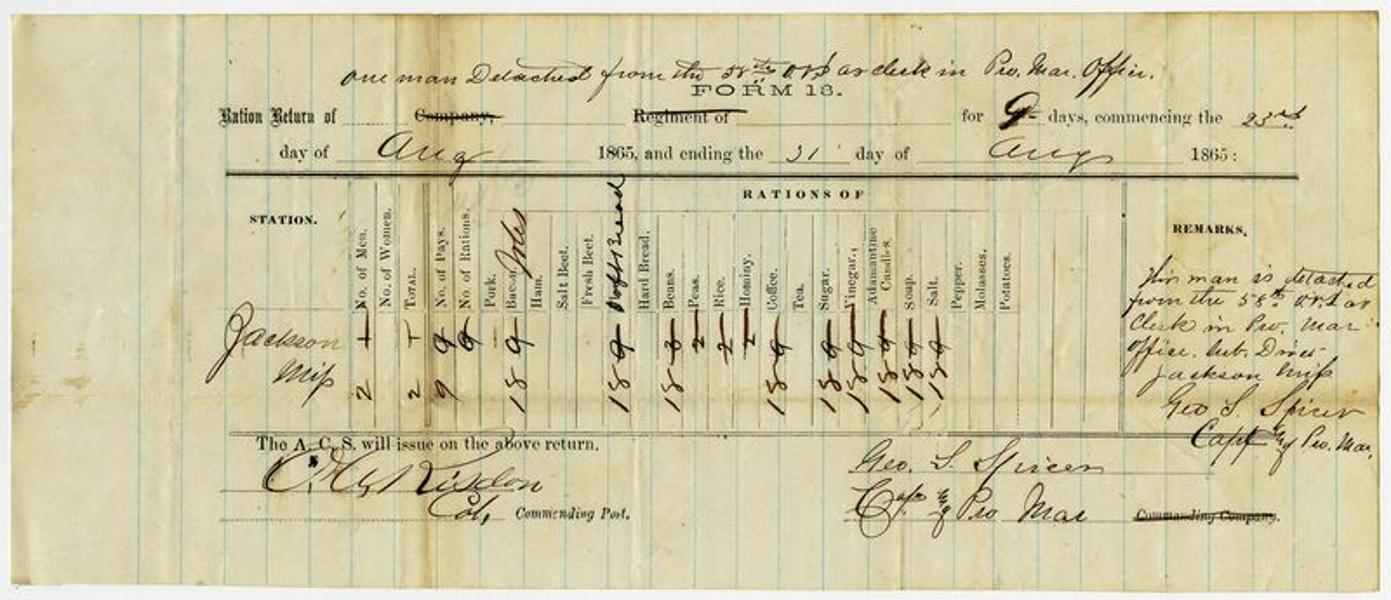 one man Detached from the 58th O.V.I as clerk in Pro. Mar. Office.
FORM 13.
Ration Return of Company, Regiment of for 9 days, commencing the 23rd
day of Aug 1865, and ending the 31 day of Aug 1865:
RATIONS OF
STATION. No. of Men. No. of Women. TOTAL. No. of Days. No. of Rations. Pork. Bacon. Ham. Salt Beef. Fresh Beef. Soft Bread Hard Bread. Beans. Peas. Rice. Hominy. Coffee. Tea. Sugar. Vinegar. Adamantine Candles. Soap. Salt. Pepper. Molasses. Potatoes. REMARKS.
Jackson 1 1 9 9 9 9 9 2 2 2 9 9 9 9 9 9
Miss 2 2 9 18 18 18 18 18 18 18 18 18
This man is detached
from the 58th O.V.I as
Clerk in Pro. Mar
office. Sub. Dist
Jackson Miss
Geo S. Spicer
Capt & Pro. Mar.
The A. C. S. will issue on the above return.
O. C. Risdon
Col, Commending Post.
Geo. S. Spicer
Capt & Pro Mar Commanding Company.